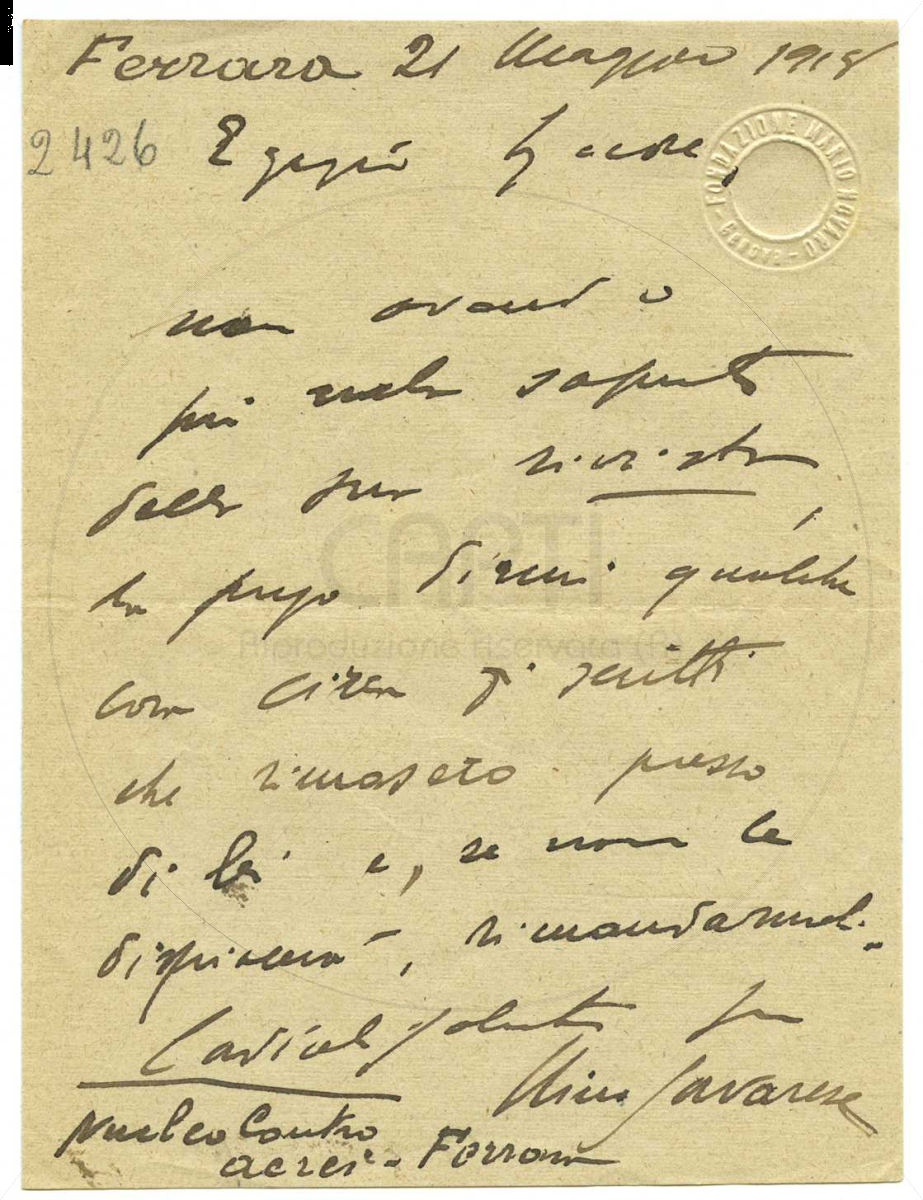 Ferrara 21 Maggio 1918
2426
Egregio Signore,
FONDAZIONE MARIO NOVARO - GENOVA -
non avendo
più nulla saputo
della sua rivista,
la prego dirmi qualche
cosa circa gli scritti
che rimasero presso
di lei e, se non le
dispiacerà, rimandarmeli.
Cordiali saluti suo
Nino Savarese
Nucleo Contro
aerei - Ferrara
CARTI
Riproduzione riservata (R)